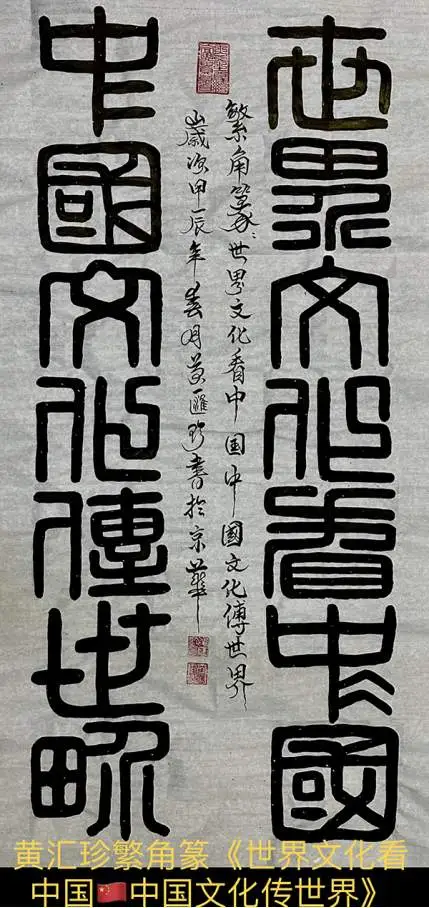 世界文化看中國
繁角篆世界文化看中国中國文化傳世界
歲次甲辰年春月黄匯珍書於京華
中國文化傳世界
黄汇珍繁角篆《世界文化看
中国🇨🇳中国文化传世界》